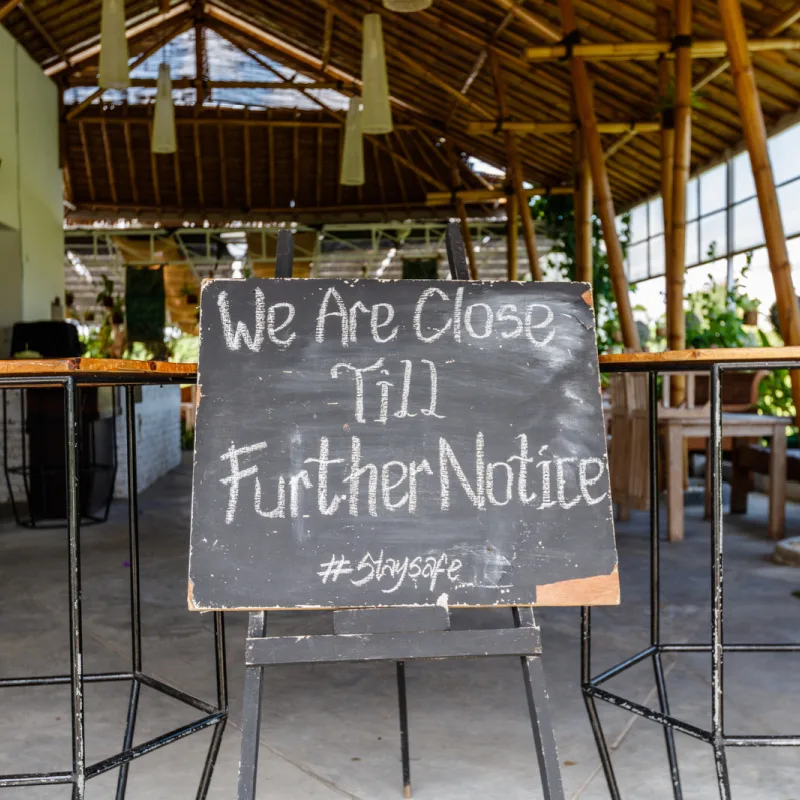 We Are Close
Till
Further Notice
#Staysafe